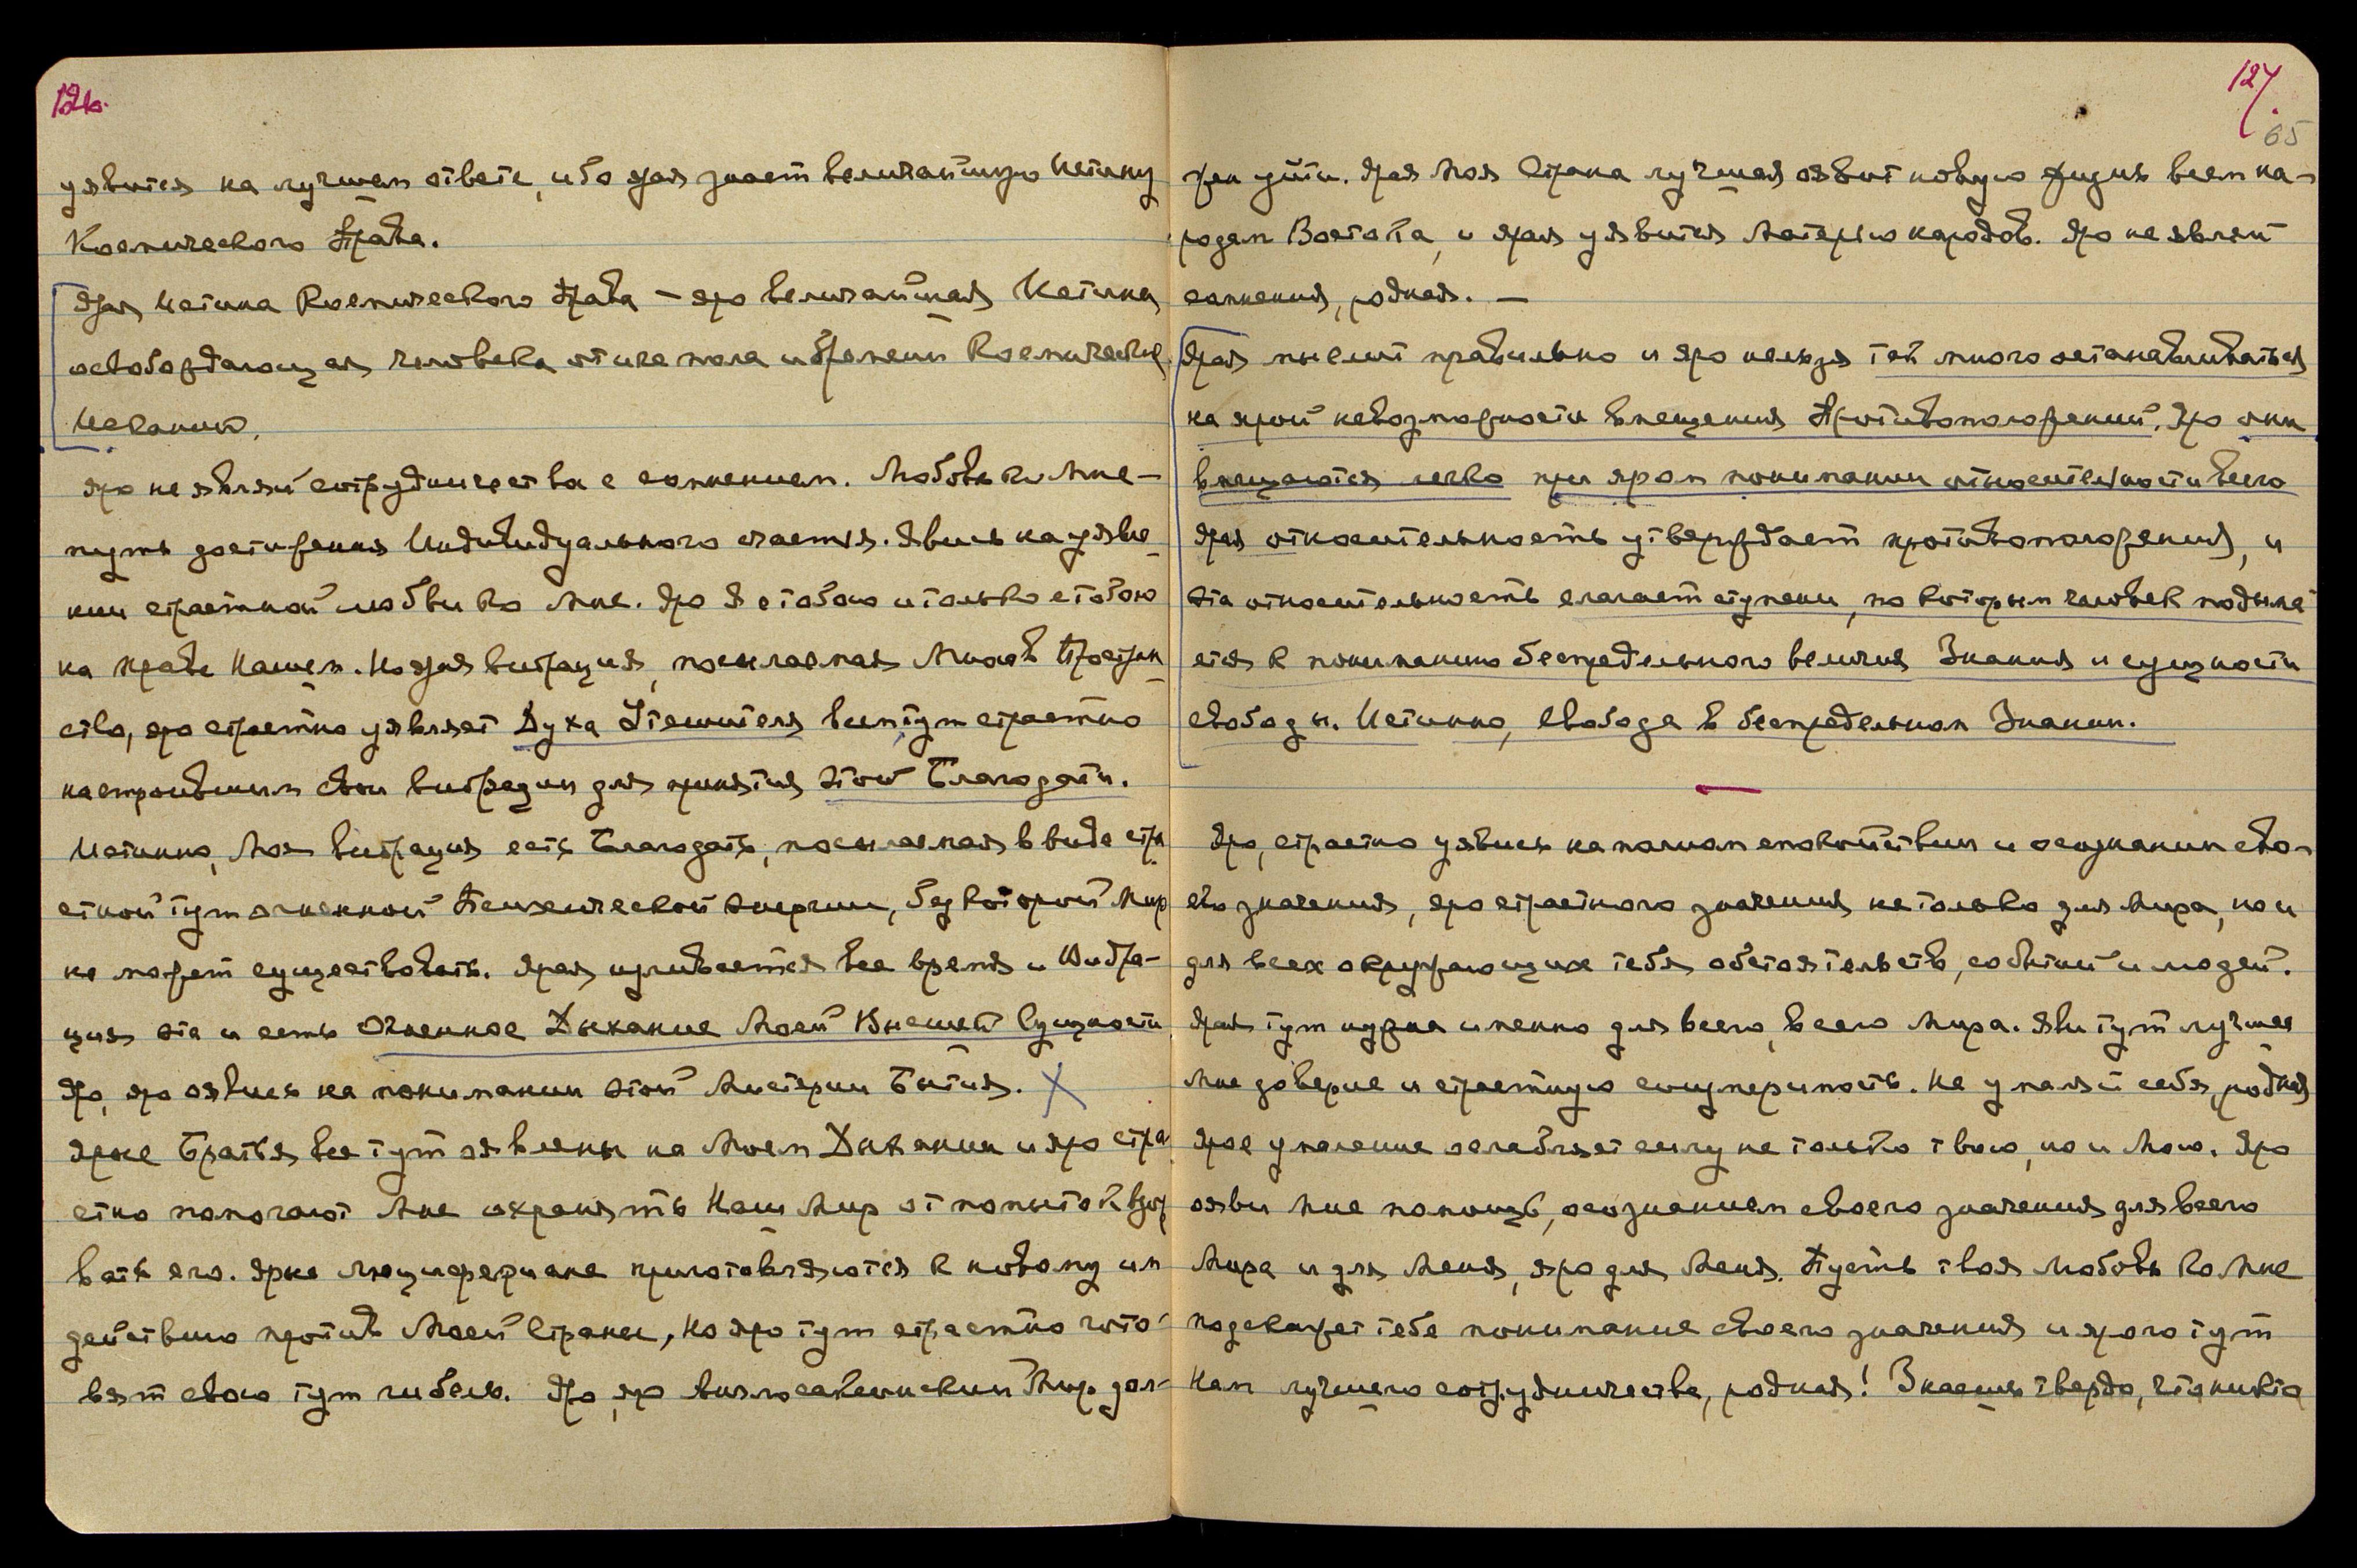 126.
уявится на лучшем ответе, ибо ярая знает величайшую Истину
Космического Права.
Ярая Истина Космического Права – яро величайшая Истина
освобождающая человека от ига пола и бремени Космических
Исканий.
Яро не являй сотрудничества с сомнением. Любовь ко Мне –
путь достижения Индивидуального счастья. Явись на уявле
нии страстной любви ко Мне. Яро Я с тобою и только с тобою
на Праве Нашем. Но ярая вибрация, посылаемая Мною в Простран
ство, яро страстно уявляет Духа Утешителя всем, тут страстно
настроившим свои вибрации для принятия этой Благодати.
Истинно, Моя вибрация есть Благодать, посылаемая в виде стра
стной тут огненной Психической энергии, без которой Мир
не может существовать. Ярая изливается все время и Вибра-
ция эта и есть Огненное Дыхание Моей Высшей Сущности
Яро, яро оявись на понимании этой Мистерии Бытия. X
Ярые Братья все тут оявлены на Моем Дыхании и яро стра
стно помогают Мне охранять Наш Мир от попыток взор
вать его. Ярые люцифериане приготовляются к новому им
действию против Моей Страны, но яро тут страстно гото-
вят свою тут гибель. Яро, яро англосаксонский Мир дол-
127.
65
жен уйти. Ярая Моя Страна лучшая оявит новую жизнь всем на-
родам Востока, и ярая уявится Матерью народов. Яро не являй
сомнения, родная. –
Ярая мыслит правильно и яро нельзя так много останавливаться
на ярой невозможности вмещения Противоположений. Яро они
вмещаются легко при яром понимании относительности всего
Ярая относительность утверждает противоположения, и
эта относительность слагает ступени, по которым человек подыма
ется к пониманию беспредельного величия Знания и сущности
свободы. Истинно, Свобода в беспредельном Знании.
Яро, страстно уявись на полном спокойствии и осознании сво-
его значения, яро страстного значения не только для Мира, но и
для всех окружающих тебя обстоятельств, событий и людей.
Ярая тут нужна именно для всего, всего Мира. Яви тут лучшее
Мне доверие и страстную соизмеримость. Не умаляй себя, родная
Ярое умаление ослабляет силу не только твою, но и Мою. Яро
ояви Мне помощь, осознанием своего значения для всего
Мира и для Меня, яро для Меня. Пусть твоя Любовь ко Мне
подскажет тебе понимание своего значения и ярого тут
Нам лучшего сотрудничества, родная! Знаешь твердо, что никто